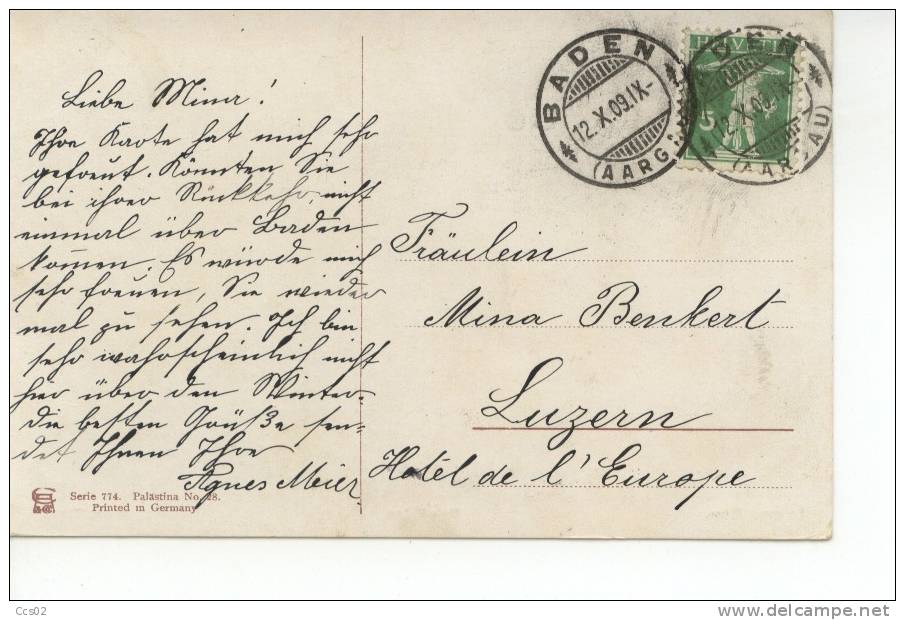 Liebe Mina!
Ihre Karte hat mich sehr
gefreut. Könnten Sie
bei ihrer Rückkehr, nicht
einmal über Baden
kommen. Es würde mich
sehr freuen, Sie wieder
mal zu sehen. Ich bin
sehr wahrscheinlich nicht
hier über den Winter.
Die besten Grüße sen=
det Ihnen Ihre
Agnes Meier.
Serie 774. Palästina No. 28.
Printed in Germany
BADEN
12.X.09.IX-
(AARGAU)
HELVETIA
5
BADEN
12.X.09.IX-
(AARGAU)
Fräulein
Mina Benkert
Luzern
Hotel de l'Europe
Ccs02
www.delcampe.net